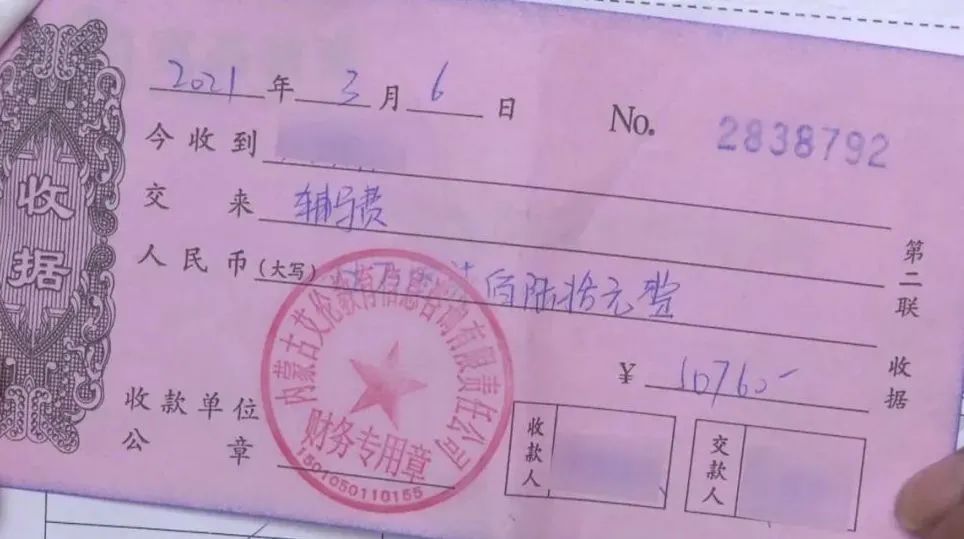 收据
2021年3月6日
No. 2838792
今收到
交来 辅导费
人民币(大写) 佰陆拾元整
¥ 10760-
收款单位
公章
收款人
交款人
第二联
收据
内蒙古艾伦教育信息咨询有限责任公司
财务专用章
1501050110155